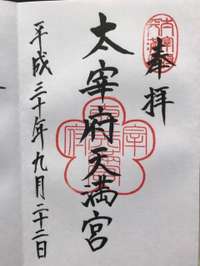 奉拝
太宰府天満宮
平成三十年九月二十二日